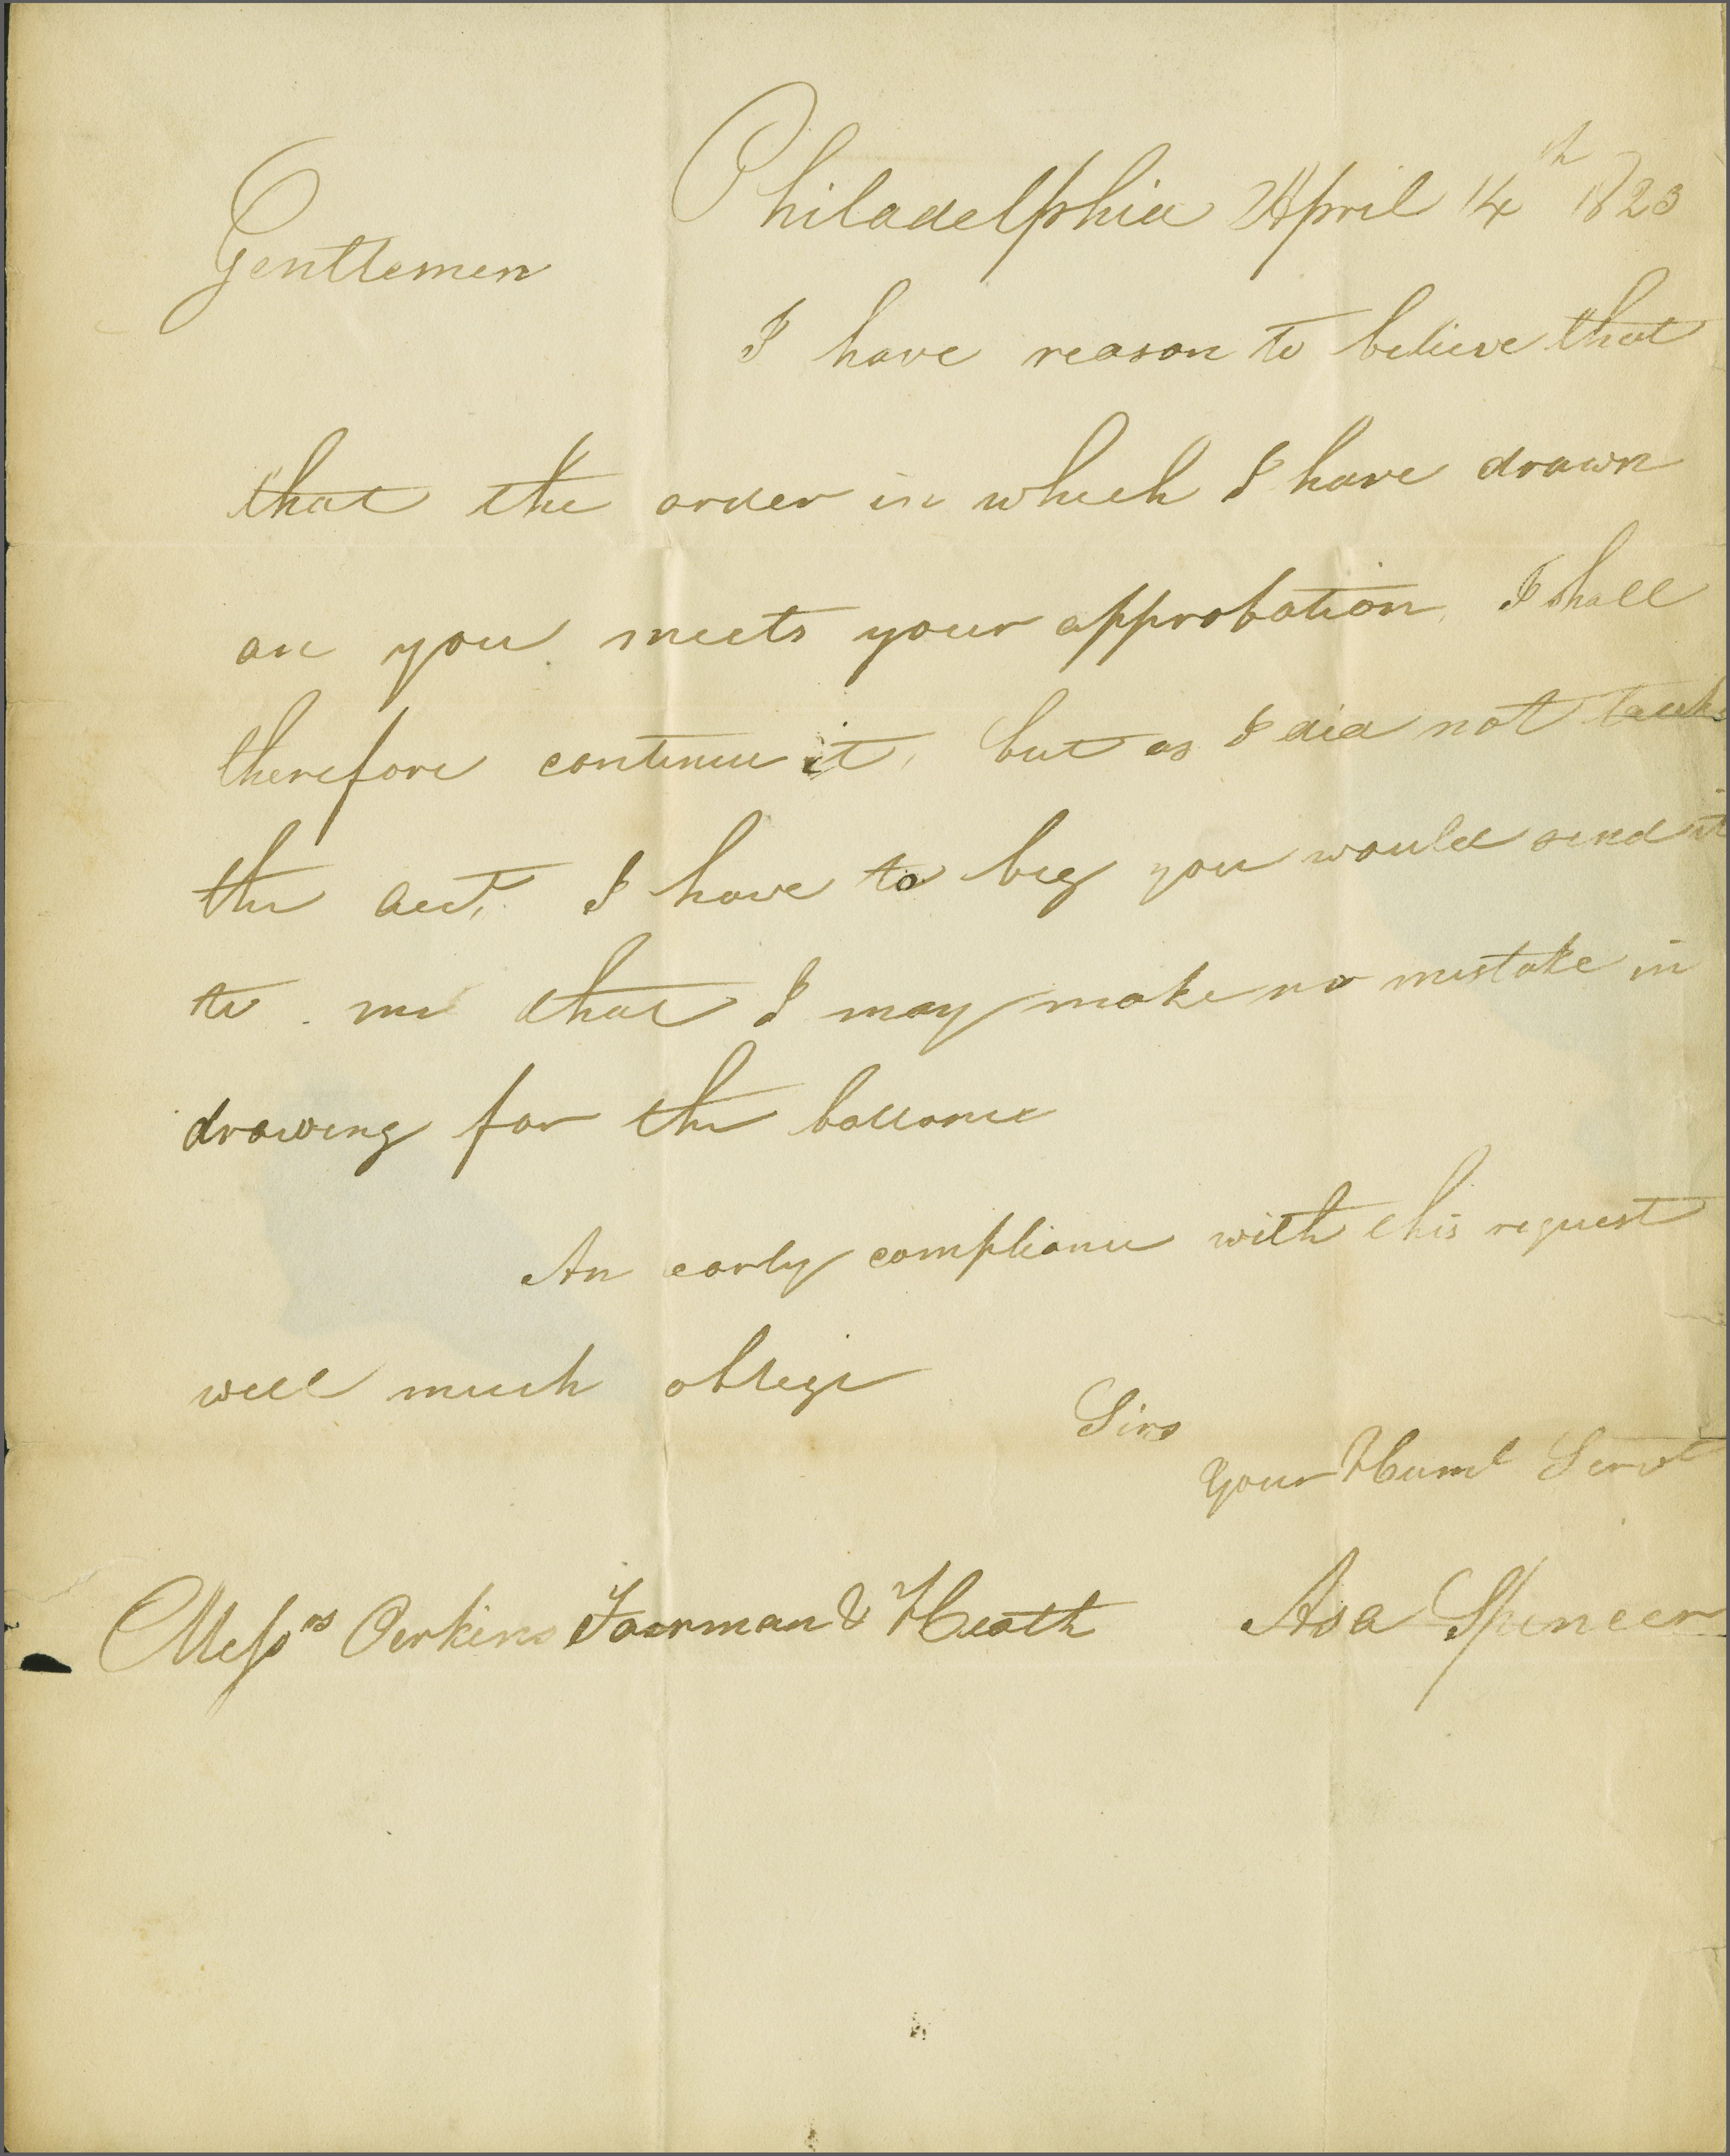 Philadelphia April 14th 1823
Gentlemen
I have reason to believe that
that the order in which I have drawn
on you meets your approbation, I shall
therefore continue it, but as I did not take
the acct, I have to beg you would send it
to me that I may make no mistake in
drawing for the ballance
An early compliance with this request
will much oblige
Sirs
Your Huml Servt
Messrs Perkins Fairman & Heath Asa Spencer